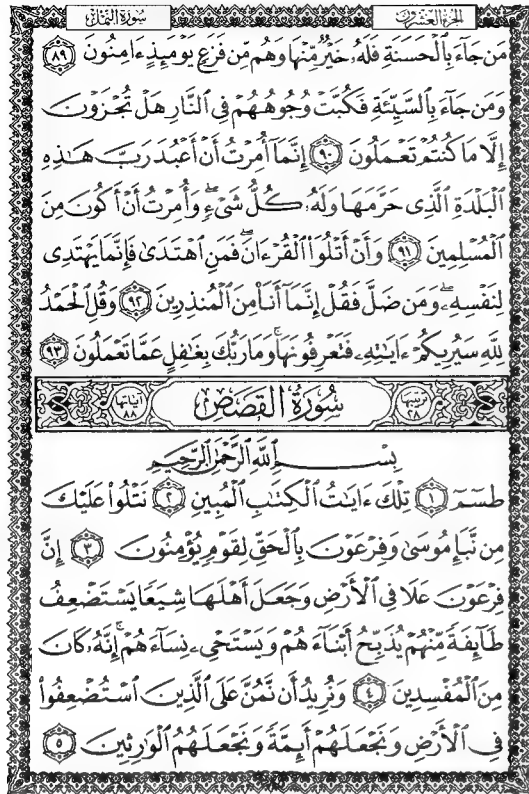 الجزء العشرون
سورة النمل
مَن جَآءَ بِٱلْحَسَنَةِ فَلَهُۥ خَيْرٌ مِّنْهَا وَهُم مِّن فَزَعٍ يَوْمَئِذٍ ءَامِنُونَ ٨٩
وَمَن جَآءَ بِٱلسَّيِّئَةِ فَكُبَّتْ وُجُوهُهُمْ فِى ٱلنَّارِ هَلْ تُجْزَوْنَ
إِلَّا مَا كُنتُمْ تَعْمَلُونَ ٩٠ إِنَّمَآ أُمِرْتُ أَنْ أَعْبُدَ رَبَّ هَـٰذِهِ
ٱلْبَلْدَةِ ٱلَّذِى حَرَّمَهَا وَلَهُۥ كُلُّ شَىْءٍۖ وَأُمِرْتُ أَنْ أَكُونَ مِنَ
ٱلْمُسْلِمِينَ ٩١ وَأَنْ أَتْلُوَا۟ ٱلْقُرْءَانَۖ فَمَنِ ٱهْتَدَىٰ فَإِنَّمَا يَهْتَدِى
لِنَفْسِهِۦۖ وَمَن ضَلَّ فَقُلْ إِنَّمَآ أَنَا۠ مِنَ ٱلْمُنذِرِينَ ٩٢ وَقُلِ ٱلْحَمْدُ
لِلَّهِ سَيُرِيكُمْ ءَايَـٰتِهِۦ فَتَعْرِفُونَهَاۚ وَمَا رَبُّكَ بِغَـٰفِلٍ عَمَّا تَعْمَلُونَ ٩٣
ترتيبها ٢٨ سُورَةُ القَصَصِ آياتها ٨٨
بِسْمِ ٱللَّهِ ٱلرَّحْمَـٰنِ ٱلرَّحِيمِ
طسٓمٓ ١ تِلْكَ ءَايَـٰتُ ٱلْكِتَـٰبِ ٱلْمُبِينِ ٢ نَتْلُوا۟ عَلَيْكَ
مِن نَّبَإِ مُوسَىٰ وَفِرْعَوْنَ بِٱلْحَقِّ لِقَوْمٍ يُؤْمِنُونَ ٣ إِنَّ
فِرْعَوْنَ عَلَا فِى ٱلْأَرْضِ وَجَعَلَ أَهْلَهَا شِيَعًا يَسْتَضْعِفُ
طَآئِفَةً مِّنْهُمْ يُذَبِّحُ أَبْنَآءَهُمْ وَيَسْتَحْىِۦ نِسَآءَهُمْۚ إِنَّهُۥ كَانَ
مِنَ ٱلْمُفْسِدِينَ ٤ وَنُرِيدُ أَن نَّمُنَّ عَلَى ٱلَّذِينَ ٱسْتُضْعِفُوا۟
فِى ٱلْأَرْضِ وَنَجْعَلَهُمْ أَئِمَّةً وَنَجْعَلَهُمُ ٱلْوَٰرِثِينَ ٥